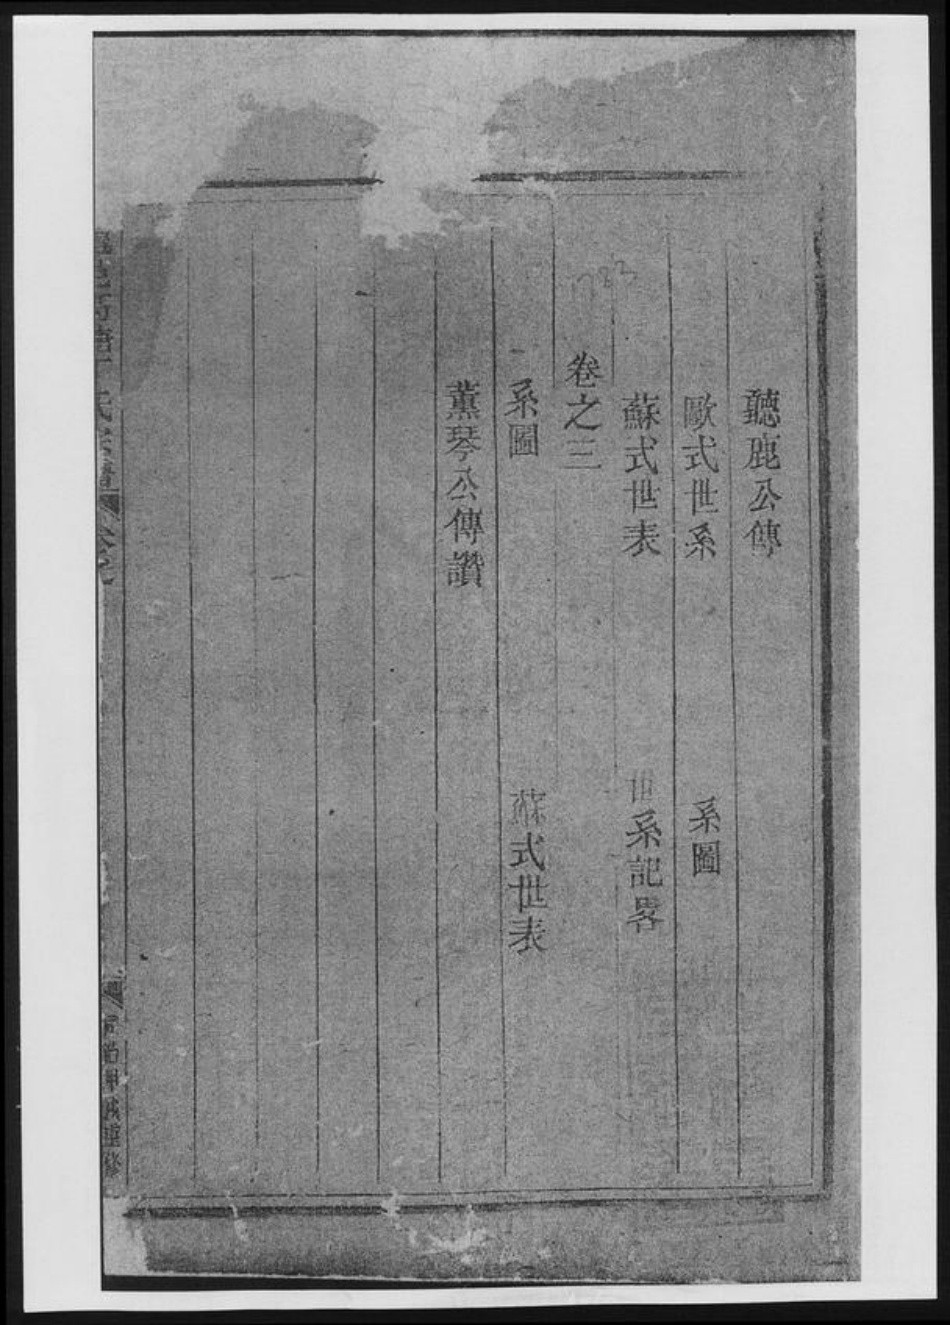 聽鹿公傳
歐式世系 系圖
蘇式世表 世系記畧
卷之三
系圖 蘇式世表
薰琴公傳讚
氏宗譜 卷之
同治甲戌重修